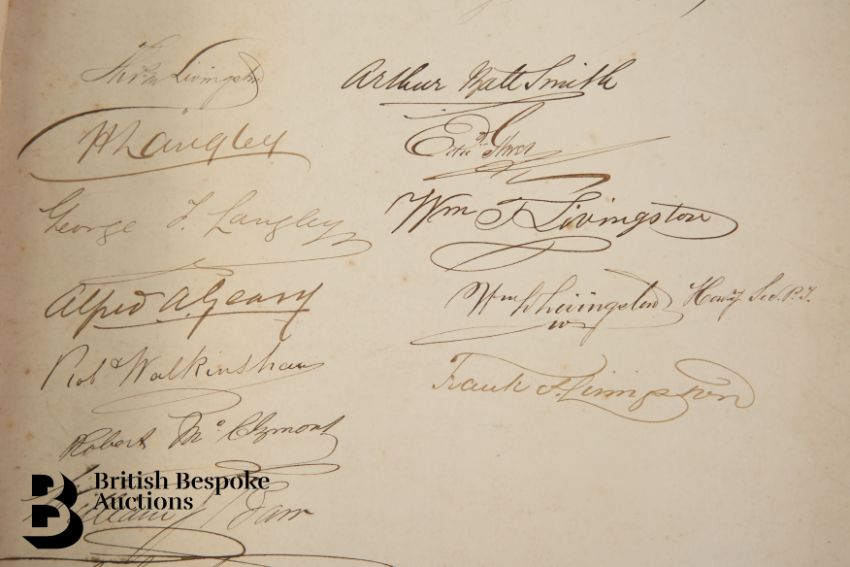 Thos Livingston
H Langley
George T. Langley
Alfred A. Geary
Robt Walkinshaw
Robert Mc Clymont
William Barr
Arthur Batt Smith
Edwd
Wm F Livingston
Wm Livingston Hony Sec. P.T.
Frank F. Livingston
British Bespoke
Auctions